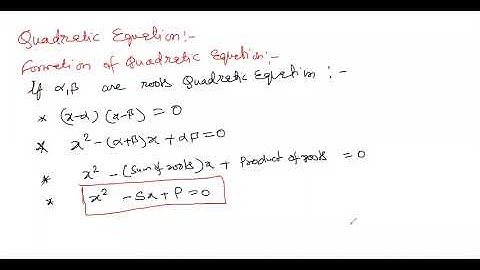 Quadratic Equation:-
Formation of Quadratic Equation:-
If α,β are roots Quadratic Equation :-
* (x-α) (x-β) = 0
* x² -(α+β)x + αβ = 0
* x² -(Sum of roots)x + Product of roots = 0
* x² - Sx + P = 0